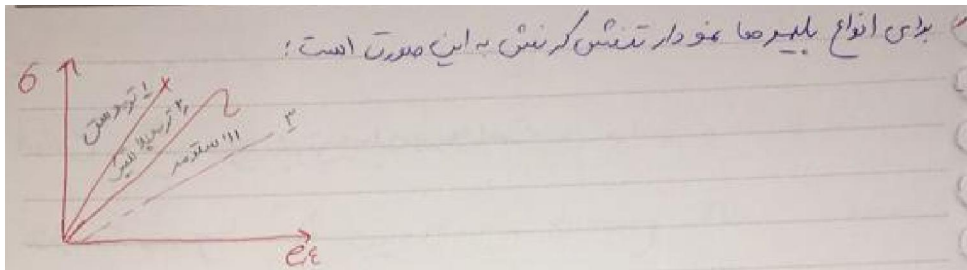 برای انواع پلیمرها نمودار تنش کرنش به این صورت است:
σ
۱ ترموست
۲ ترموپلاستیک
الاستومر ۳
e,ε